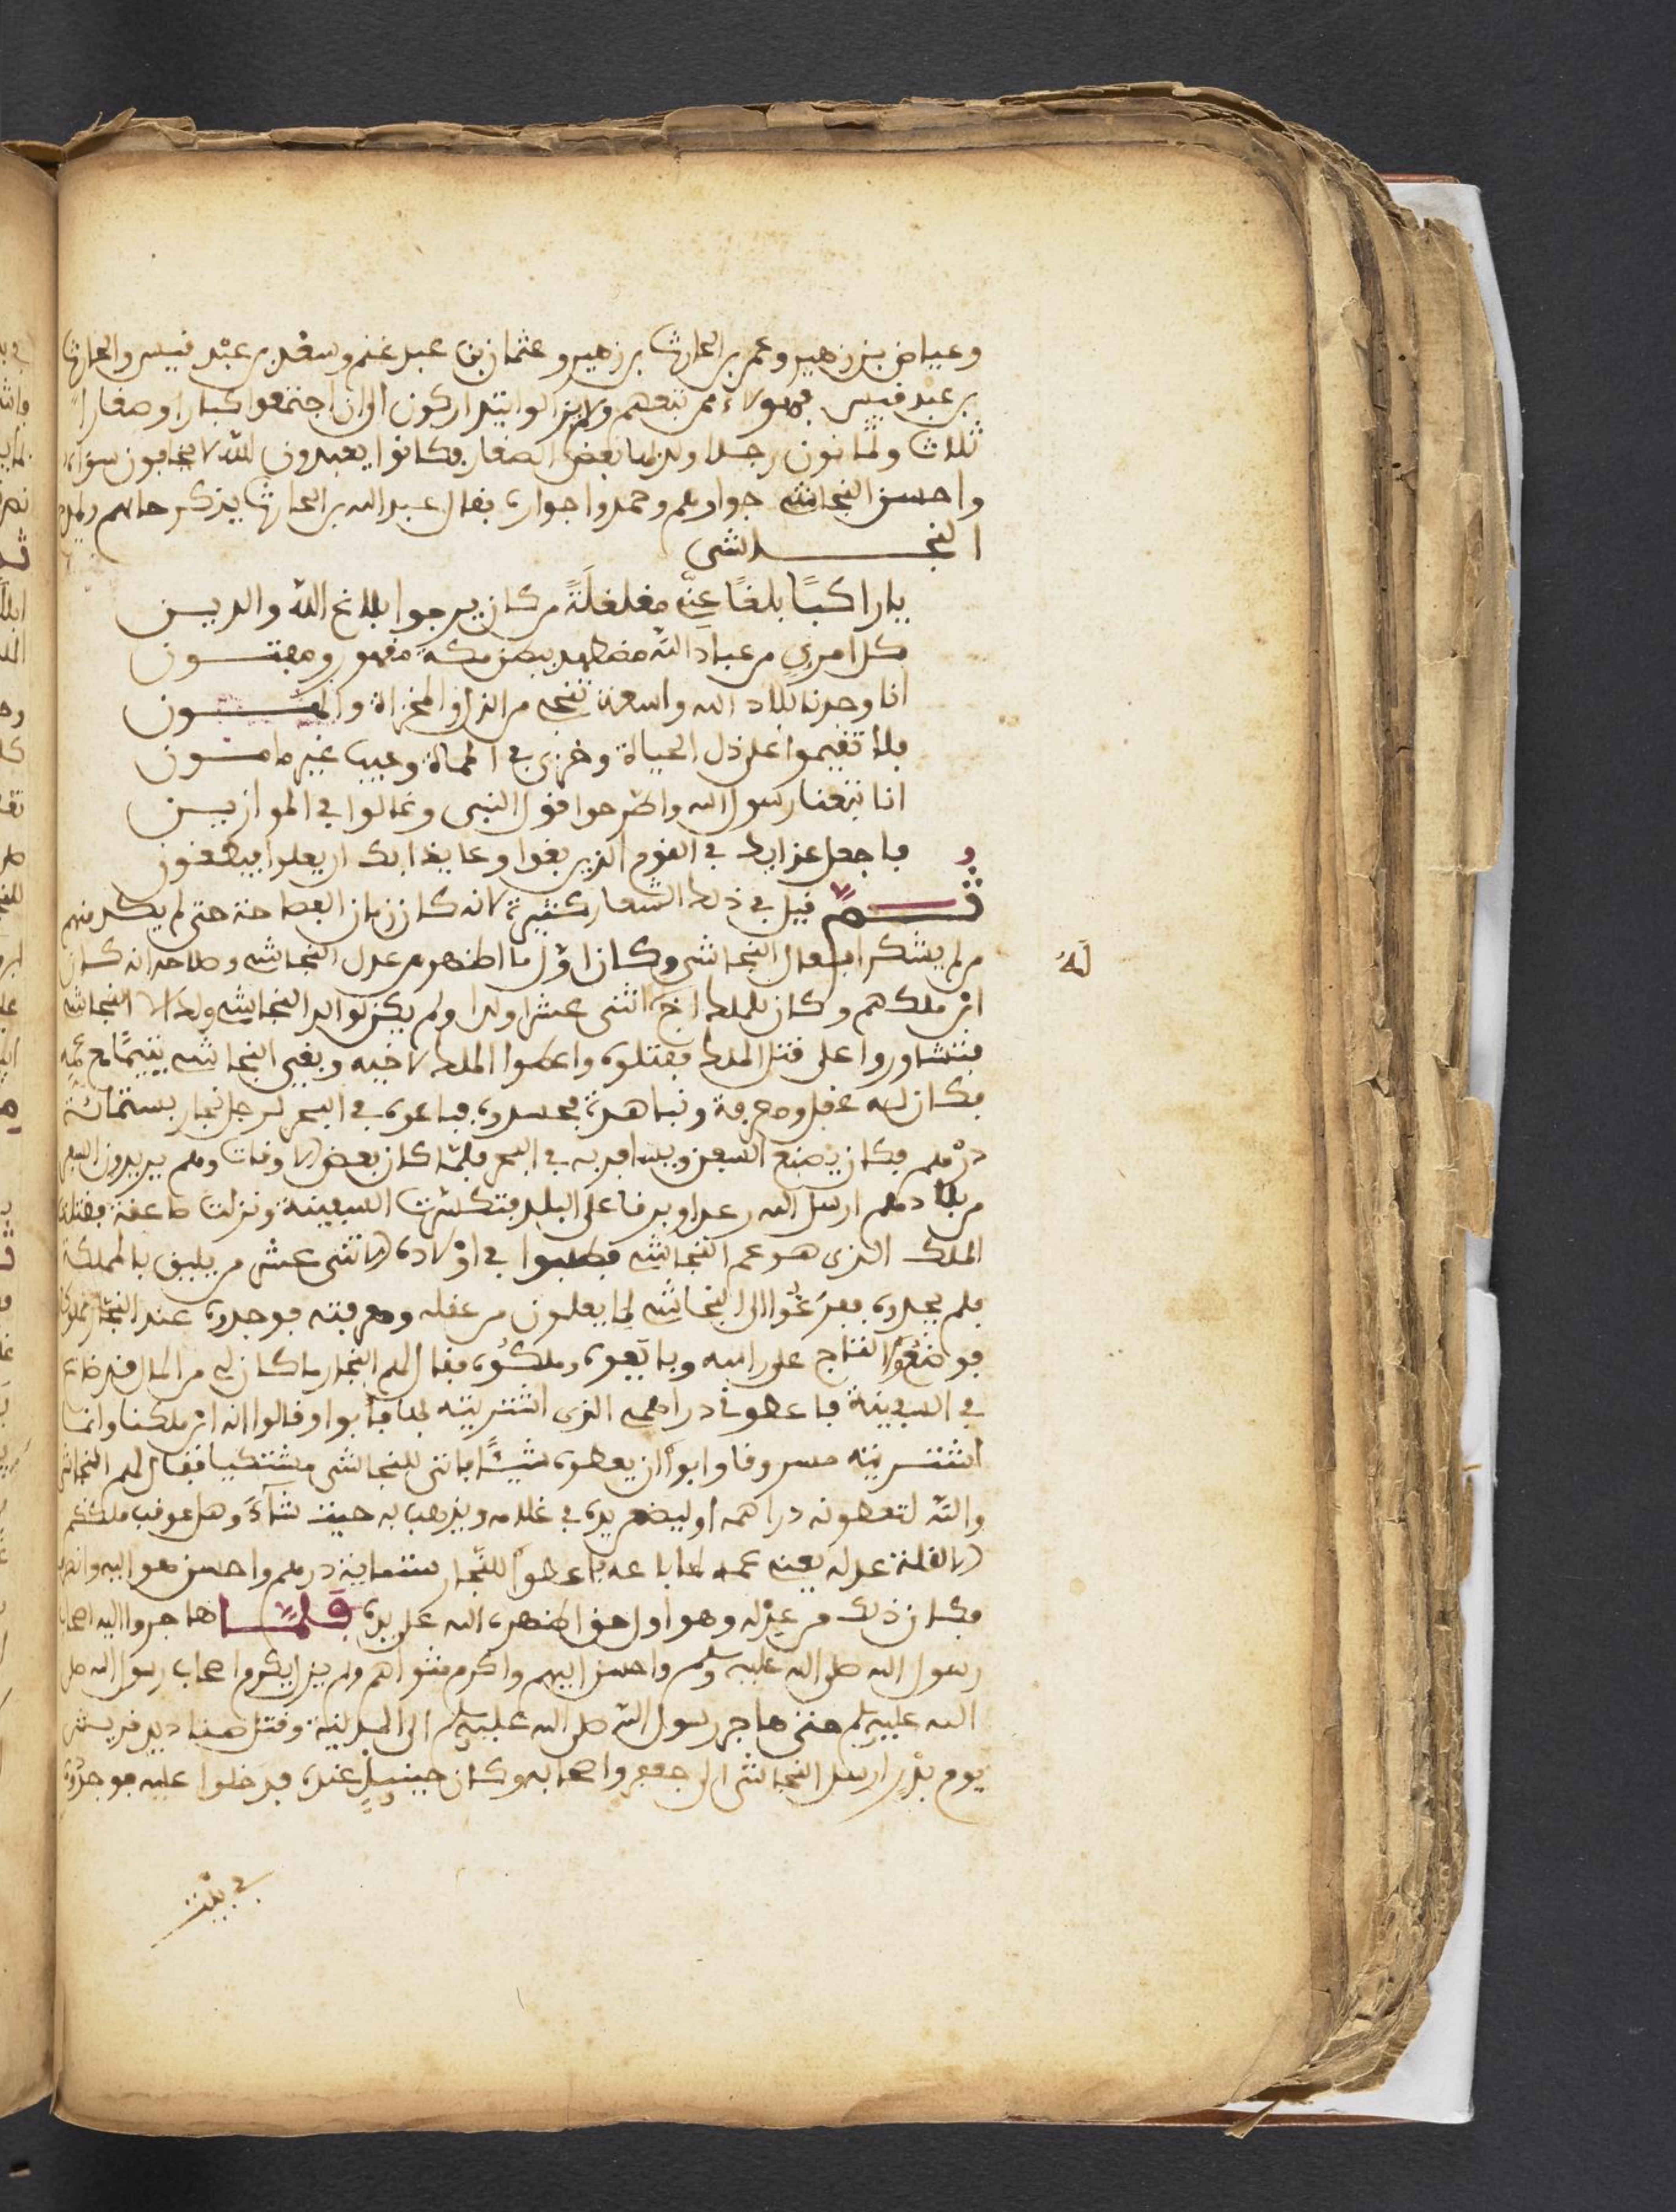 وعياض بن زهير وعمر بن الحارث بن زهير وعثمان بن عبد غنم وسعد بن عبد قيس والحارث
بن عبد قيس فهولاء ممن تبعهم ولم يزالوا يتداركون الى ان اجتمعوا كبارا وصغارا
ثلاث وثمانون رجلا وولدلها بعض الصغار فكانوا يعبدون الله لا يخافون سواه
واحسن النجاشي جوارهم وحمدوا جواره فقال عبد الله بن الحارث يذكر حالهم
النجاشي
يا راكبًا بلغًا عني مغلغلَةً من كان يرجوا بلاغ الله والدين
كل امرئ من عباد الله مضطهد ببطن مكة مقهور ومفتون
انا وجدنا بلاد الله واسعة تنجي من الذل والمخزاة والهون
فلا تقيموا على ذل الحياة وخزي في المماة وعيب غير مامون
انا تبعنا رسول الله واطرحوا قول النبي وعالوا في الموازين
فاجعل عذابك في القوم الذين بغوا وعايذا بك ان يعلوا فيطغون
ثمّ قيل في ذلك اشعار كثيرة لانه كان زمان الفصاحة حتى لم يك منهم
من لم يشكر افعال النجاشي وكان اوّل ما اظهر من عدل النجاشي وصلاحه انه كان
لَهُ
ابن ملكهم وكان للملك اخ اثنى عشر ولدا ولم يكن لوالد النجاشي ولد الا النجاشي
فتشاوروا على قتل الملك فقتلوه واعطوا الملك لاخيه وبقي النجاشي يتيمًا مع عمّه
فكان له عقل ومعرفة ونباهة فحسدوه فباعوه في البحر لرجل نجار بستمائة
درهم فكان يصنع السفن ويسافر به في البحر فلمّا كان بعض الاوقات وهم يريدون السفر
من بلادهم ارسل الله رعدا وبرقا على البلد فتكسّرت السفينة ونزلت صاعقة فقتلت
الملك الذي هو عم النجاشي فطلبوا في اوْلاده الاثنى عشر من يليق بالمملكة
فلم يجدوه ففزعُوا الى النجاشي لما يعلون من عقله ومعرفته فوجدوه عند النجّار
فوضعُوا التاج على راسه وبايَعوه وملكُوه فقال لهم النجار ما كان لي من المال قد ضاع
في السفينة فاعطوني دراهمي الذي اشتريته لها فأبوا وقالوا انه ابن ملكنا وانما
اشتريته مسروقا وابوْا ان يعطوه شيئًا فاتى للنجاشي مشتكيا فقال لهم النجاشي
والله لتعطونه دراهمه او ليضع يده في غلامه ويذهب به حيث شآء وهل عوقب ملككم
الا لقلة عدله يعني عمه لما باعه فاعطوْا للنجّار ستماية درهم واحسن هو اليه
فكان ذلك من عدْله وهو اول حق اظهره الله على يده فَلمّا هاجروا اليه اصحاب
رسول الله صلى الله عليه وسلم واحسن اليهم واكرم مثواهم ولم يزل يكرم اصحاب رسول الله صلى
الله عليه وسلم حتى هاجر رسول الله صلى الله عليه وسلم الى المدينة وقتل صناديد قريش
يوم بدْر ارسل النجاشي الى جعفر واصحابه وكان حينيذٍ عنده فدخلوا عليه فوجدُوه
في بيْت